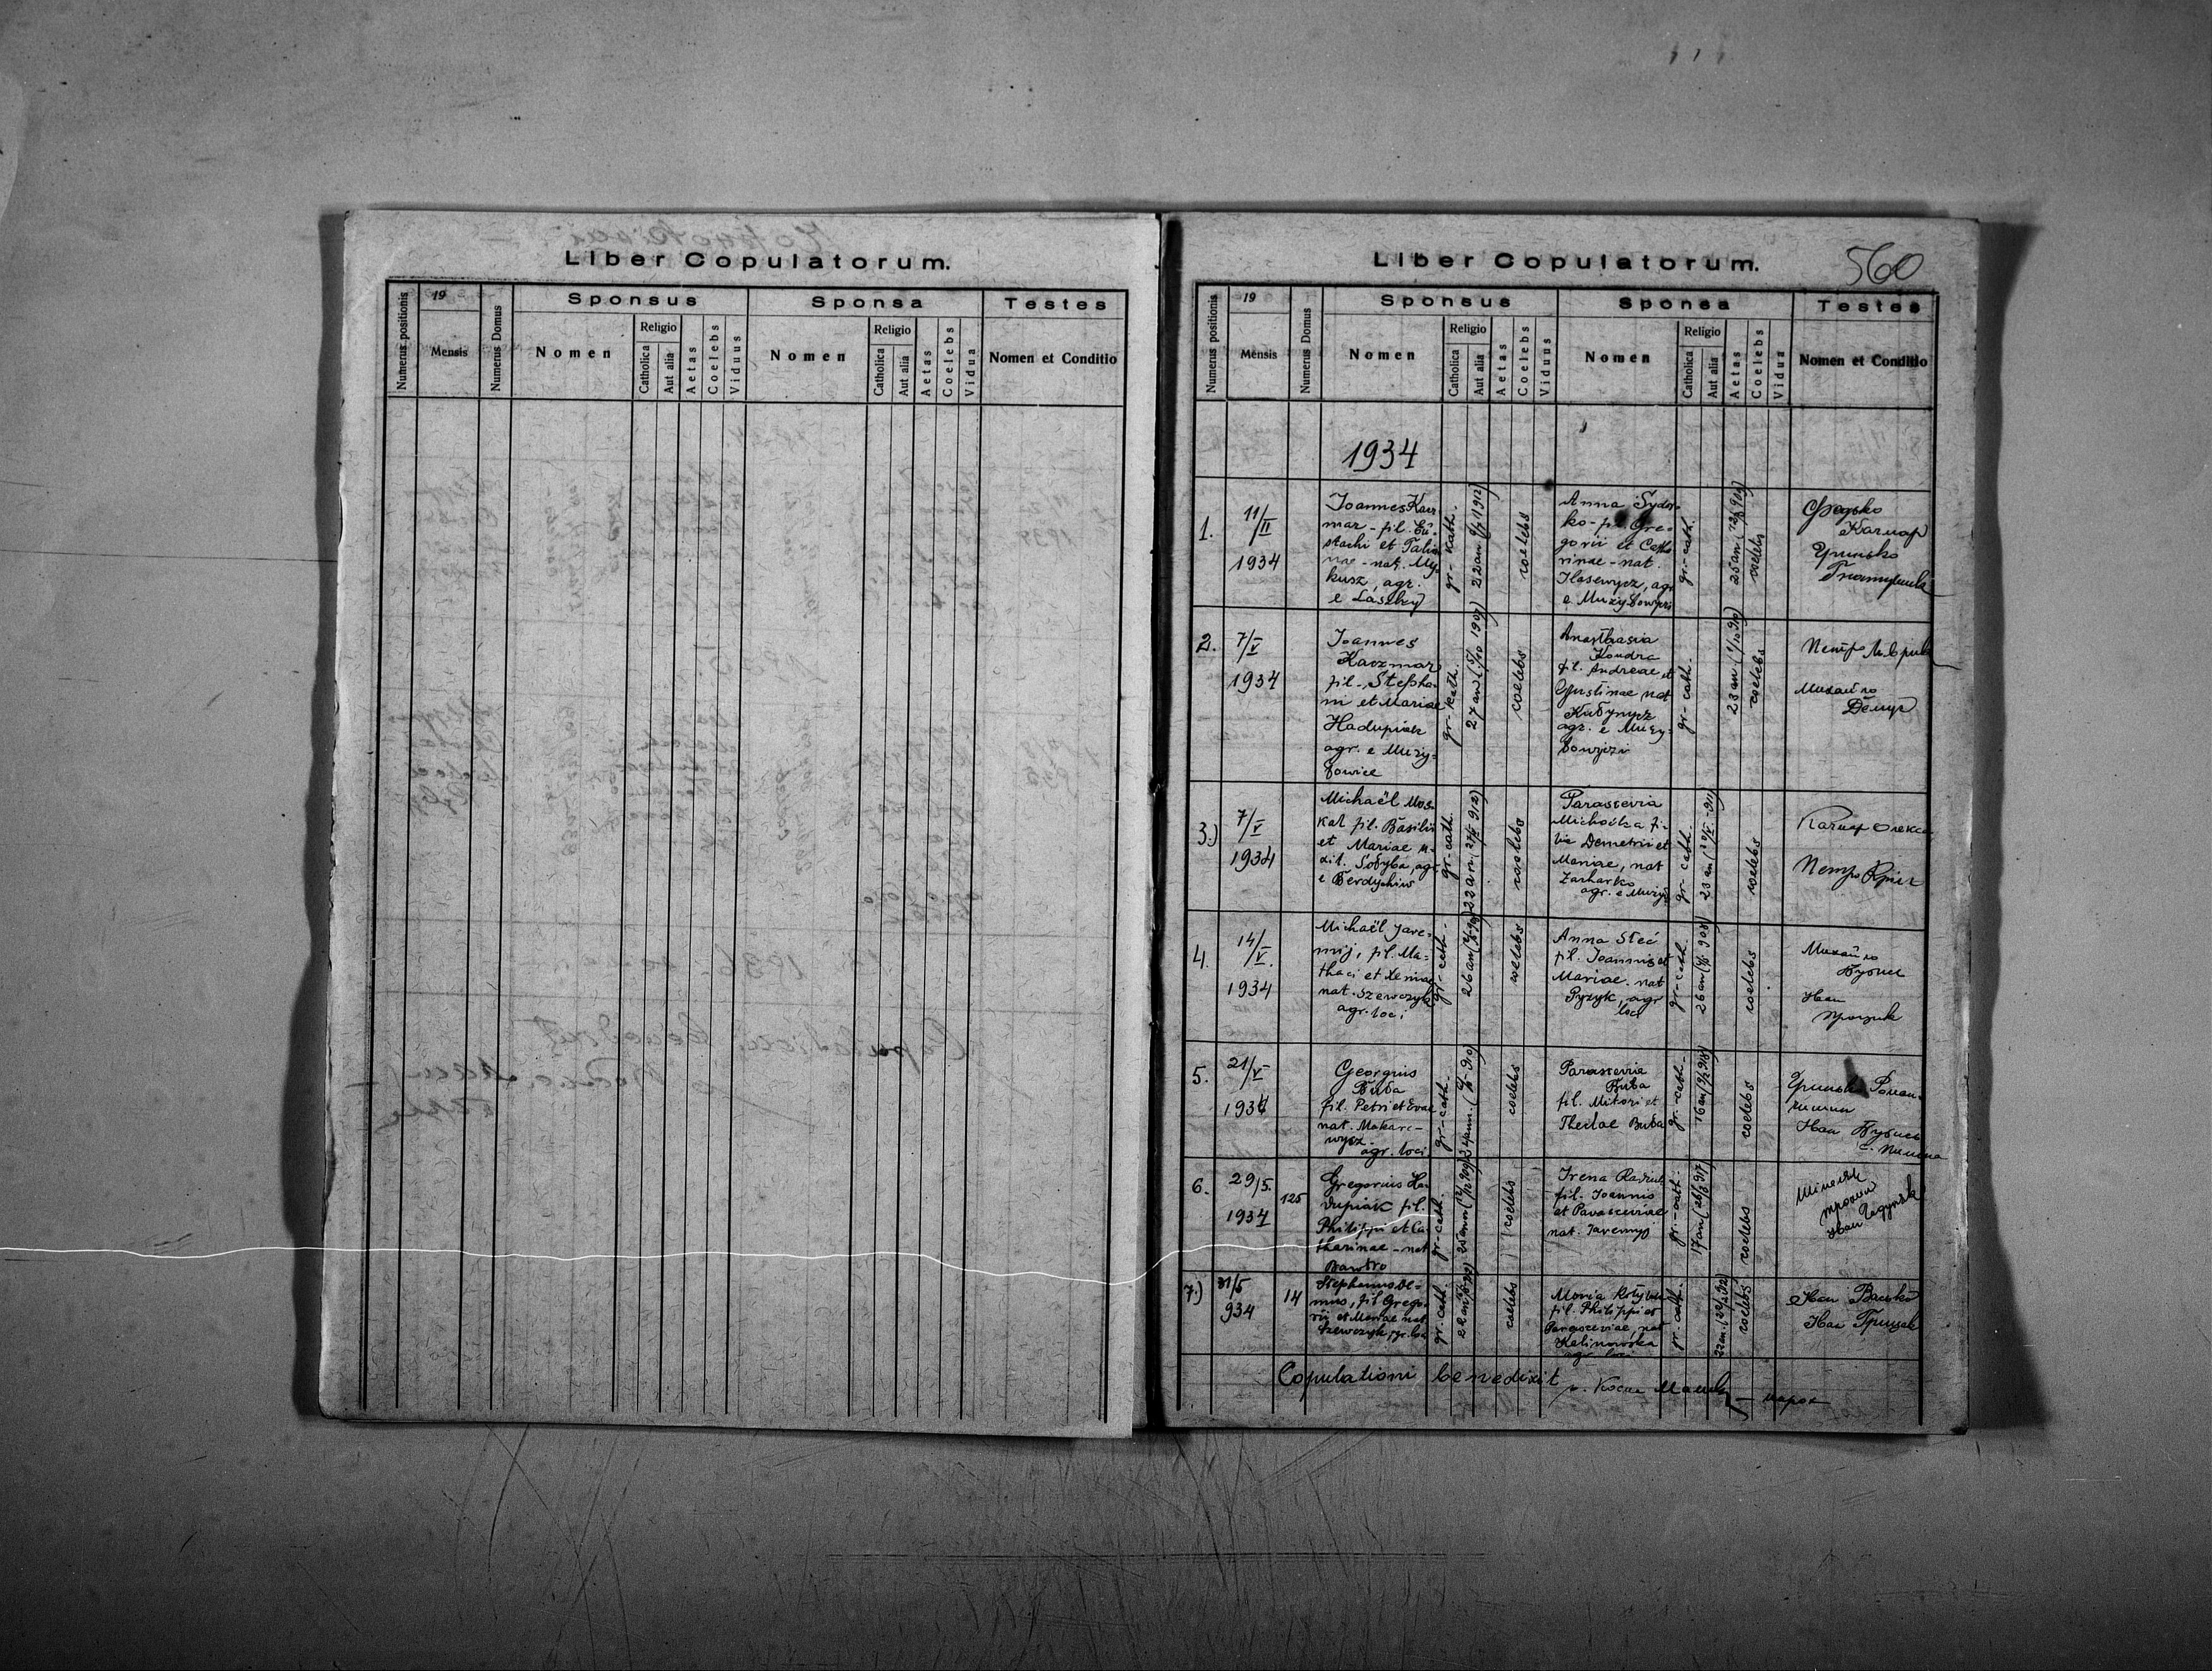 Liber Copulatorum.
Numerus positionis
19
Mensis
Numerus Domus
Sponsus
Nomen
Religio
Catholica
Aut alia
Aetas
Coelebs
Viduus
Sponsa
Nomen
Religio
Catholica
Aut alia
Aetas
Coelebs
Vidua
Testes
Nomen et Conditio
Liber Copulatorum.
560
Numerus positionis
19
Mensis
Numerus Domus
Sponsus
Nomen
Religio
Catholica
Aut alia
Aetas
Coelebs
Viduus
Sponsa
Nomen
Religio
Catholica
Aut alia
Aetas
Coelebs
Vidua
Testes
Nomen et Conditio
1934
1.
11/II
1934
Joannes Kacz
mar - fil. Eu
stachi et
nae - nat. My
kusz, agr.
e Laszky
gr-kath.
22 an
1912)
coelebs
Anna Sydor
ko - fil. Gre-
gorii et Cath
rinae - nat.
Ilasewycz, agr
gr-cath.
25 an
coelebs
Федько
Качмар
Гринько
2.
7/V
1934
Joannes
Kaczmar
fil. Stepha-
ni et Mariae
Hadupiak
agr. e Muzy-
lowice
gr-kath.
27 an (5/10 1907)
coelebs
Anasthasia
Kondra
fil. Andreae et
Justinae nat
agr. e Muzy-
gr-cath.
23 an
coelebs
Петро
Михайло
Демус
3.)
7/V
1934
Michaël Mos-
kal fil. Basilii
et Mariae
agr
e Berdychiw
gr-cath.
22 an
912)
coelebs
Parascevia
fi-
lia Demetrii et
Mariae, nat
Zacharko
agr. e Muzył
gr-cath.
23 an
911)
coelebs
Качмар Олекса
Петро
4.
14/V.
1934
Michaël Jare-
mij, fil. Ma-
thaei et Xeniae
nat. Szewczyk
agr. loci
gr-cath.
26 an
coelebs
Anna Steć
fil. Joannis et
Mariae. nat
Pyzyk, agr
loci
gr-cath.
26 an
908)
coelebs
Михайло
Іван
5.
21/V
1934
Georgius
Buba
fil. Petri et Evae
nat. Makare-
wycz.
agr. loci
gr-cath.
910)
coelebs
Parascevia
Buba
fil. et
Theclae Buba
gr-cath.
16 an
918)
coelebs
Гринько Роман-
Іван
6.
29/5.
1934
125
Gregorius Ha-
dupiak fil.
Philippi et Ca-
tharinae - nat
gr-cath.
25 ann
909)
coelebs
Irena
fil. Joannis
et Parasceviae
nat. Jaremyj
gr-cath.
17 an
917)
coelebs
Іван
7.)
31/5
934
14
Stephanus De-
mus, fil Grego-
rii et Mariae nat
Szewczyk, agr. loci
gr. cath.
22 an
coelebs
Maria
fil. Philippi et
Parasceviae, nat
Kalinowska
agr loci
gr.-cath.
22 an.
coelebs
Іван Васько
Іван Грицак
Copulationi benedixit
парох